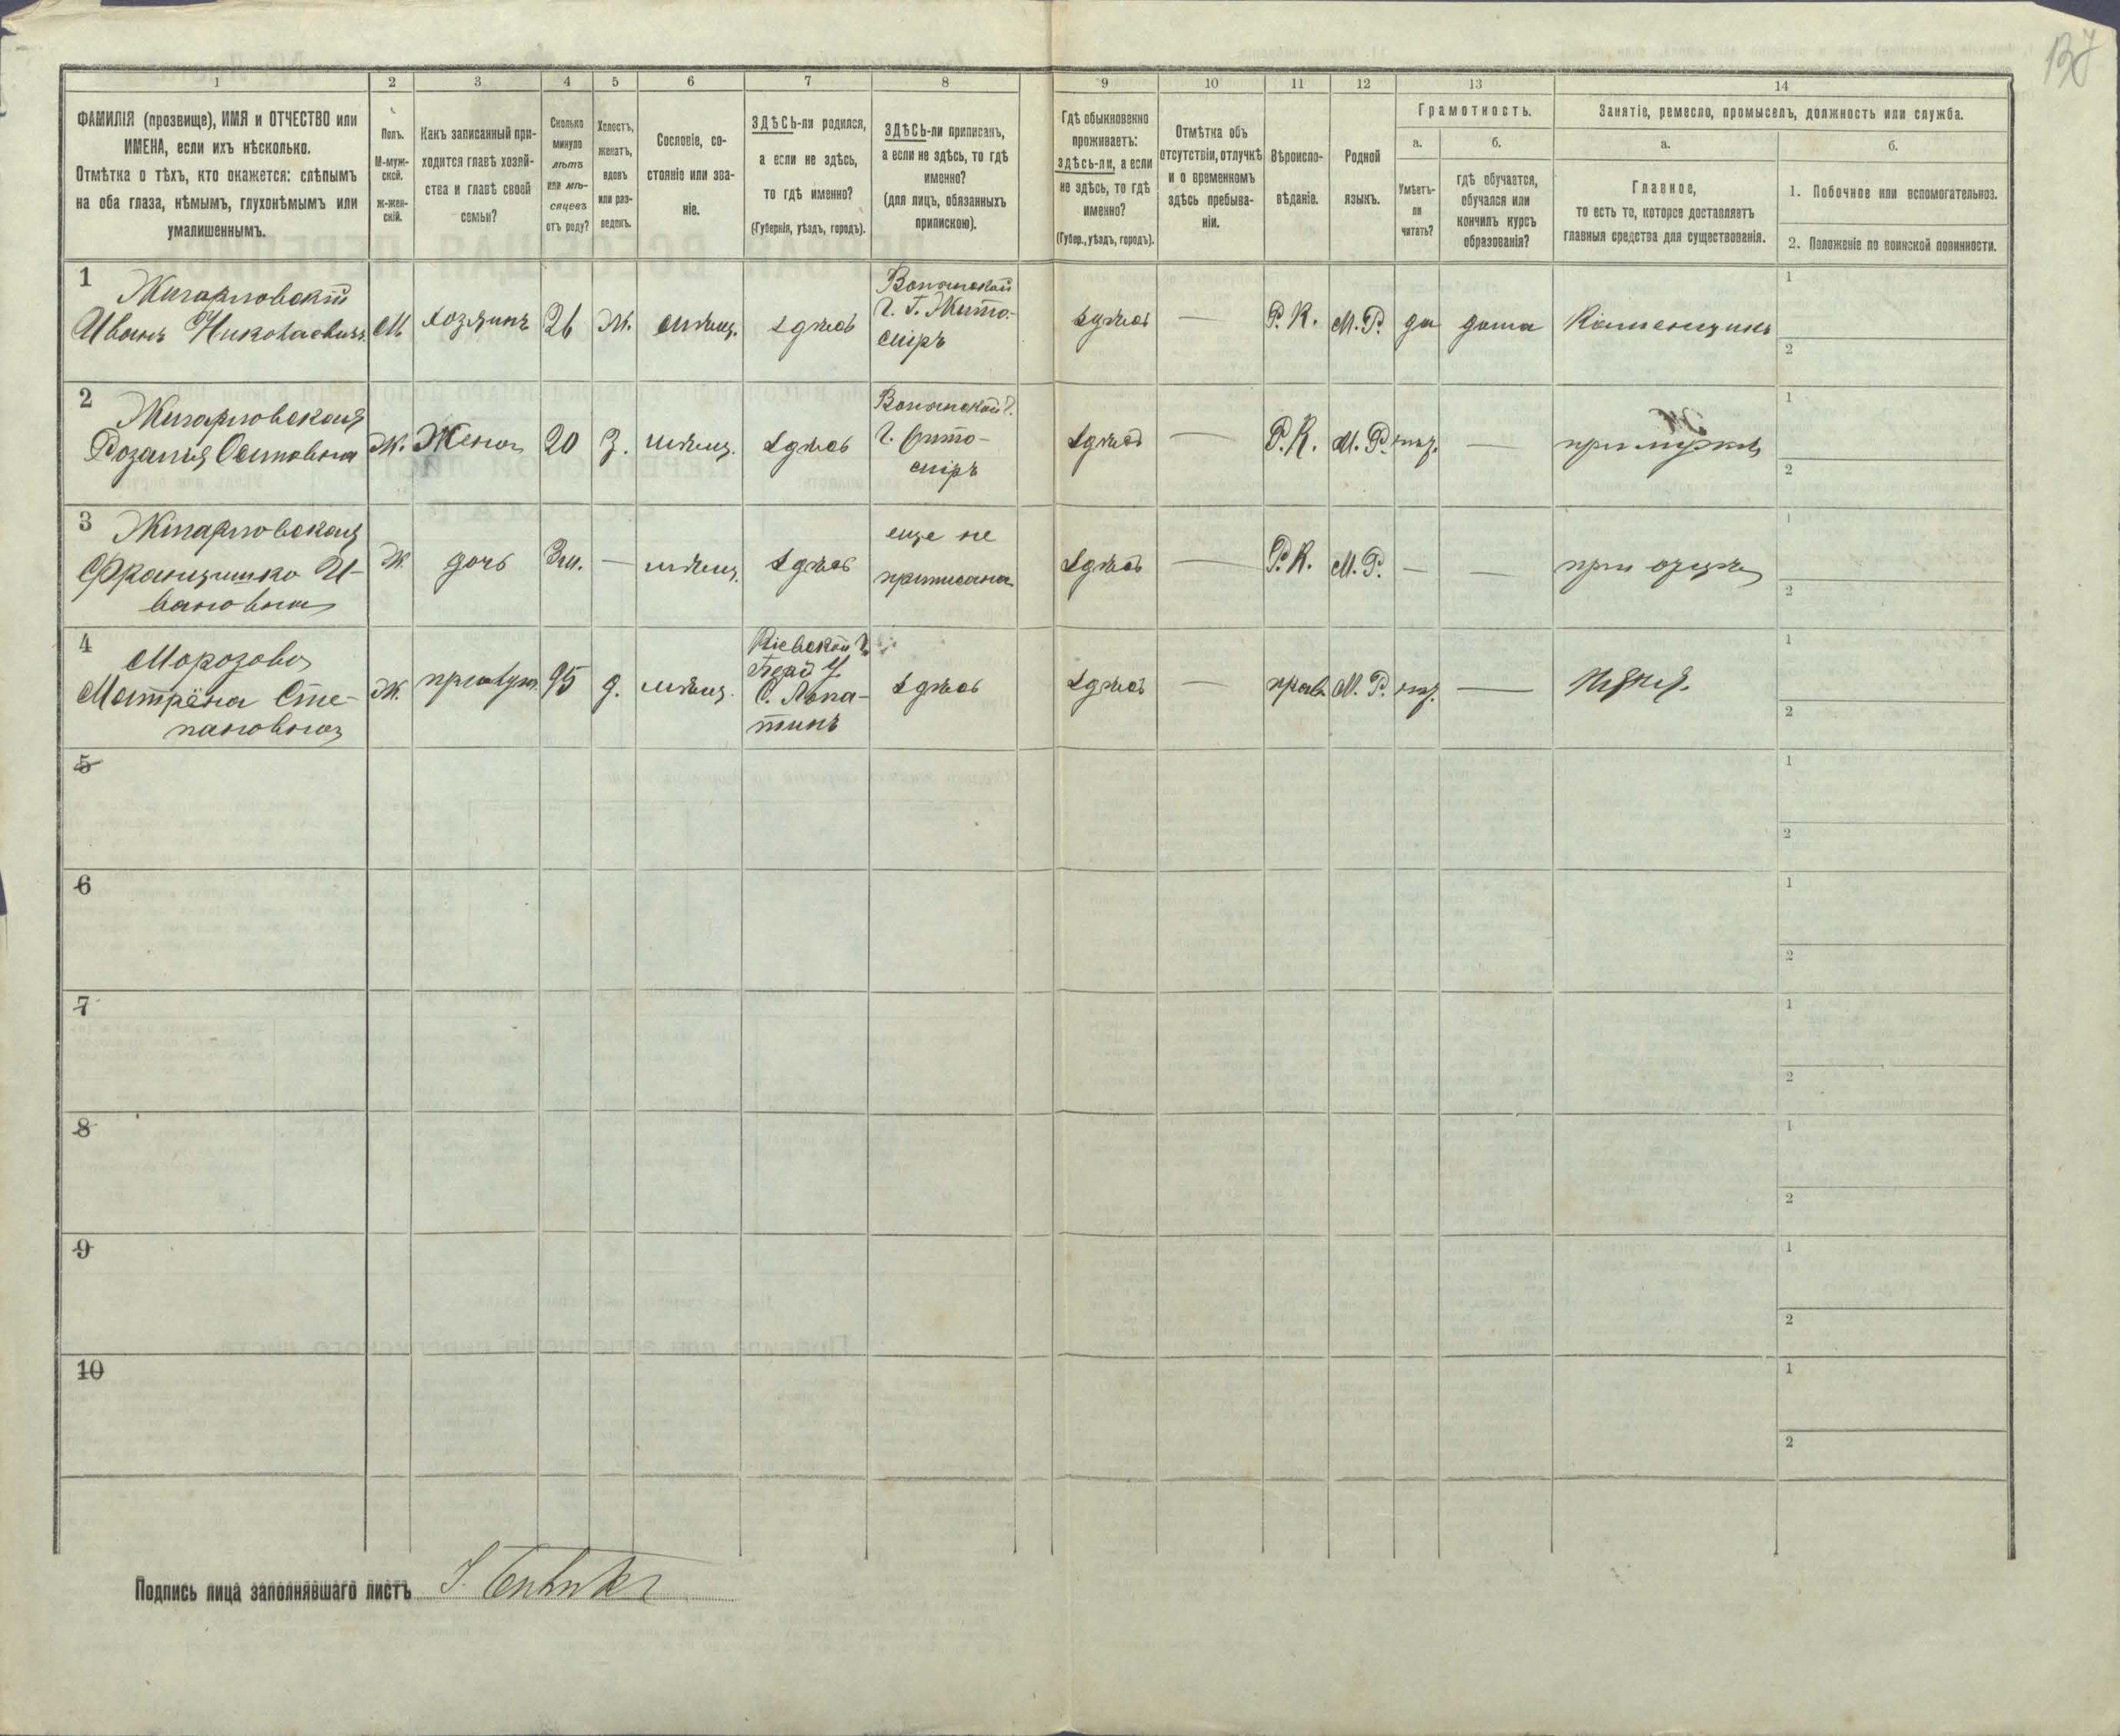 137
1 2 3 4 5 6 7 8 9 10 11 12 13 14
ФАМИЛІЯ (прозвище), ИМЯ и ОТЧЕСТВО или
ИМЕНА, если ихъ нѣсколько.
Отмѣтка о тѣхъ, кто окажется: слѣпымъ
на оба глаза, нѣмымъ, глухонѣмымъ или
умалишеннымъ.
Полъ.
М-муж-
ской.
Ж-жен-
скій.
Какъ записанный при-
ходится главѣ хозяй-
ства и главѣ своей
семьи?
Сколько
минуло
лѣтъ
или мѣ-
сяцевъ
отъ роду?
Холостъ,
женатъ,
вдовъ
или раз-
веденъ.
Сословіе, со-
стояніе или зва-
ніе.
ЗДѢСЬ-ли родился,
а если не здѣсь,
то гдѣ именно?
(Губернія, уѣздъ, городъ).
ЗДѢСЬ-ли приписанъ,
а если не здѣсь, то гдѣ
именно?
(для лицъ, обязанныхъ
припискою).
Гдѣ обыкновенно
проживаетъ:
здѣсь-ли, а если
не здѣсь, то гдѣ
именно?
(Губер., уѣздъ, городъ).
Отмѣтка объ
отсутствіи, отлучкѣ
и о временномъ
здѣсь пребыва-
ніи.
Вѣроиспо-
вѣданіе.
Родной
языкъ.
Грамотность.
а.
Умѣетъ-
ли
читать?
б.
гдѣ обучается,
обучался или
кончилъ курсъ
образованія?
Занятіе, ремесло, промыселъ, должность или служба.
а.
Главное,
то есть то, которое доставляетъ
главныя средства для существованія.
б.
1. Побочное или вспомогательное.
2. Положеніе по воинской повинности.
1
Иванъ Николаевичъ
М
хозяинъ
26
Ж.
мѣщ.
здѣсь
Волынской
Г. Г. Жито-
міръ
здѣсь
—
Р. К.
М. Р.
да
дома
Каменщикъ
1
2
2
Розалія Осиповна
Ж.
Жена
20
З.
мѣщ.
здѣсь
Волынской Г.
Г. Жито-
міръ
здѣсь
—
Р. К.
М. Р.
—
при мужѣ
1
2
3
Францишка И-
вановна
Ж
дочь
3 м.
—
мѣщ.
здѣсь
еще не
приписана
здѣсь
—
Р. К.
М. Р.
—
—
при отцѣ
1
2
4
Морозова
Матрёна Сте-
пановна
Ж.
прислуга
д.
мѣщ.
Кіевской Г.
Берд У
С. Лопа-
тинъ
здѣсь
здѣсь
—
прав.
М. Р.
—
Няня.
1
2
5
1
2
6
1
2
7
1
2
8
1
2
9
1
2
10
1
2
Подпись лица заполнявшаго листъ